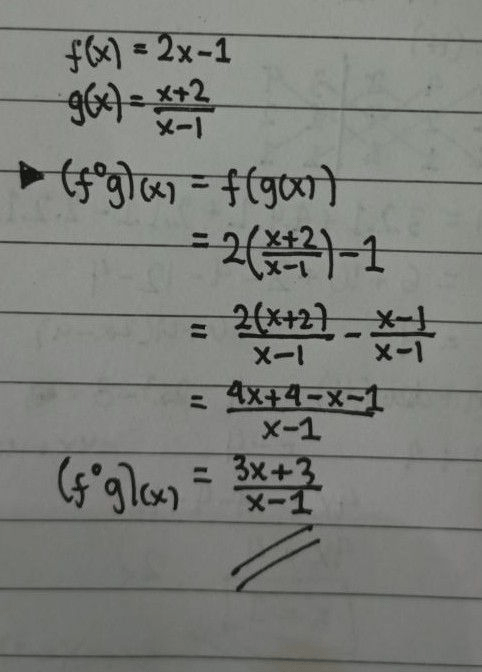 f(x) = 2x-1
g(x) = x+2/x-1
▶ (f°g)(x) = f(g(x))
= 2(x+2/x-1)-1
= 2(x+2)/x-1 - x-1/x-1
= 4x+4-x-1/x-1
(f°g)(x) = 3x+3/x-1